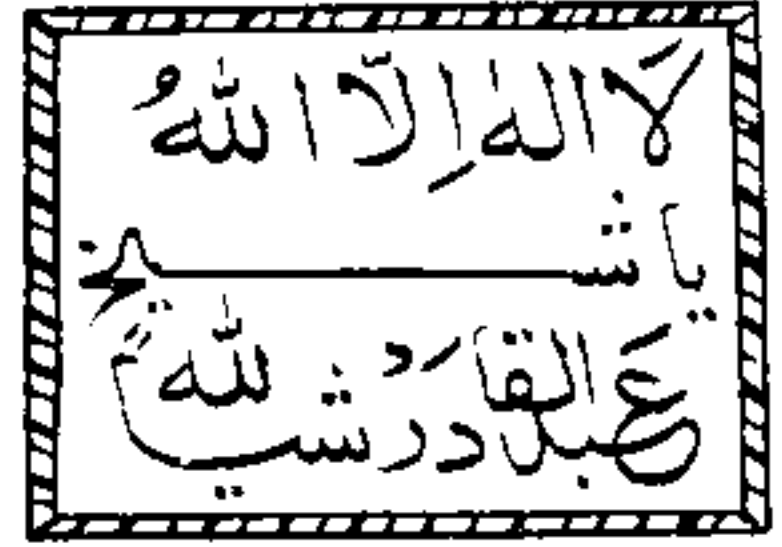 لا اله الا الله
يا شيخ
عبد القادر شيئا لله